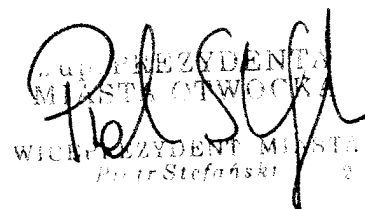 z up. PREZYDENTA
MIASTA OTWOCKA
WICEPREZYDENT MIASTA
Piotr Stefański
2